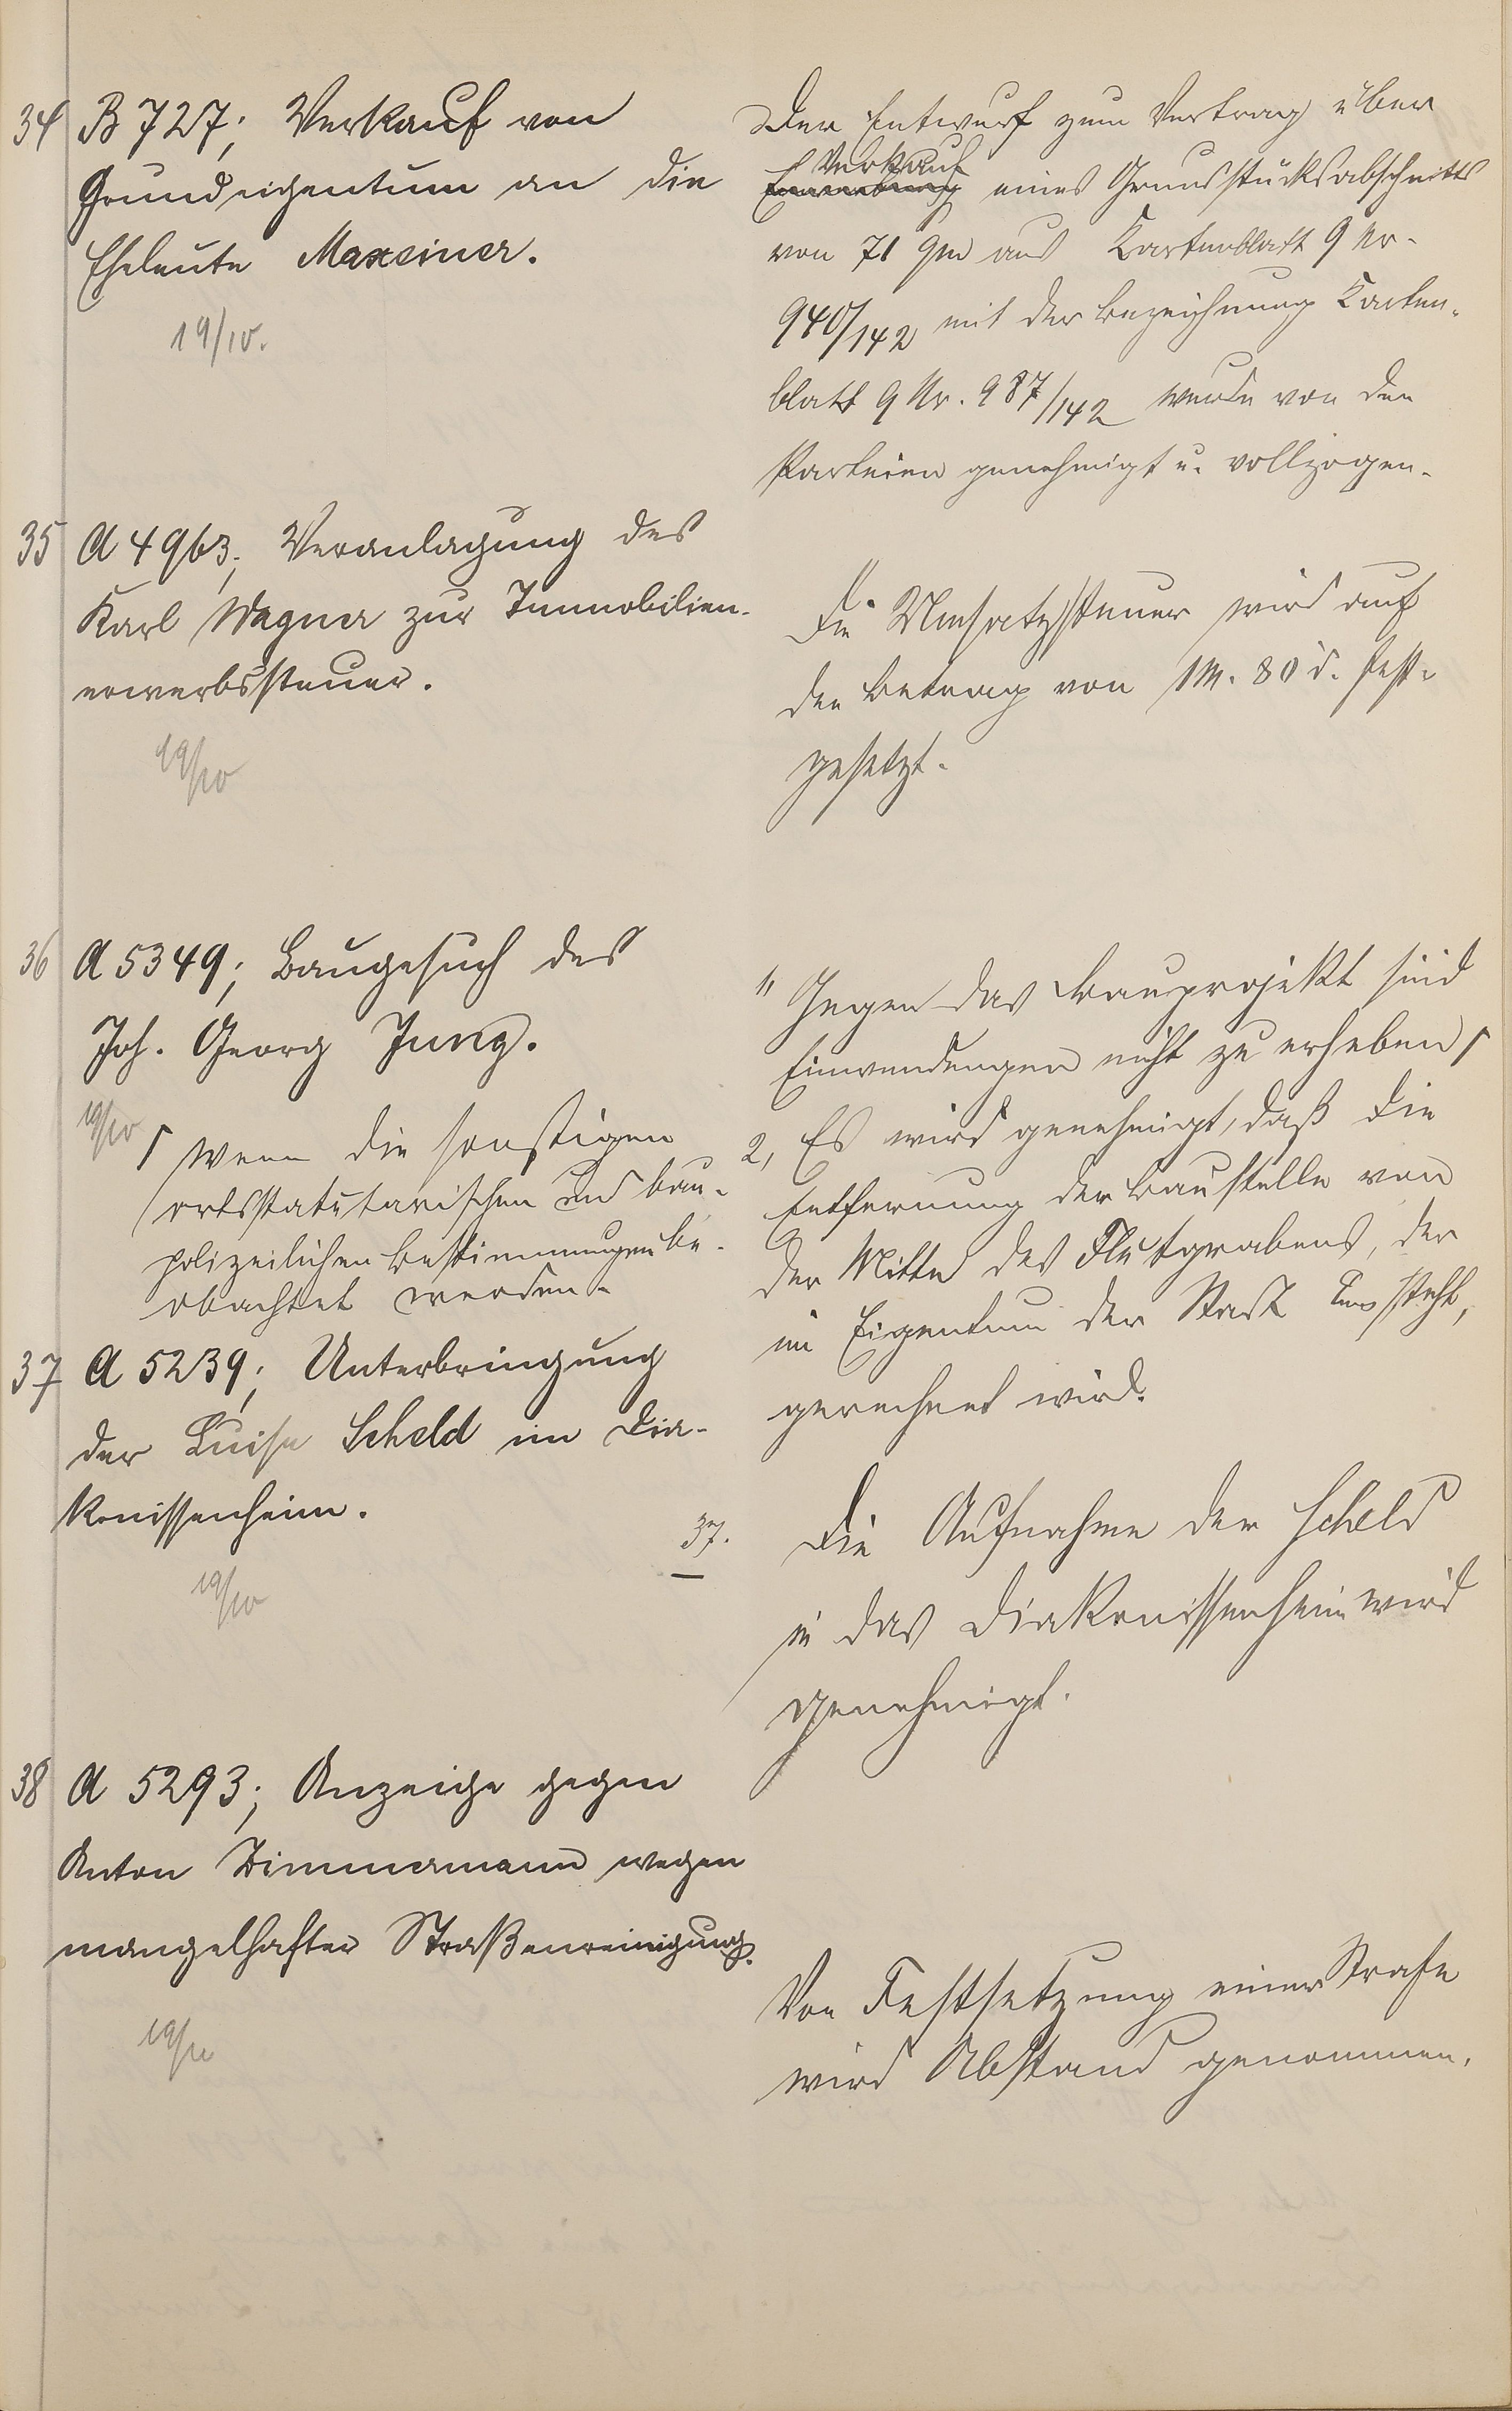 34 B 727; Verkauf von
Grundeigentum an die
Eheleute Maxeiner.
19/10.
Der Entwurf zum Vertrag über
Verkauf
eines Grundstücksabschnitts
von 71 qm aus Kartenblatt 9 Nr.
940/142 mit der Bezeichnung Karten-
blatt 9 Nr. 987/142 wurde von den
Parteien genehmigt u. vollzogen.
35 A 4963; Veranlagung des
Karl Wagner zur Immobilien-
erwerbssteuer.
19/10
Die Umsatzsteuer wird auf
den Betrag von 1 M. 80 d. fest-
gesetzt.
36 A 5349; Baugesuch des
Joh. Georg Jung.
19/10
⌈ wenn die sonstigen
ortsstatutarischen und bau-
polizeilichen Bestimmungen be-
obachtet werden.
1, Gegen das Bauprojekt sind
Einwendungen nicht zu erheben ⌈
2, Es wird genehmigt, daß die
Entfernung der Baustelle von
der Mitte des Flutgrabens, der
im Eigentum der Stadt steht,
gerechnet wird.
37 A 5239; Unterbringung
der Luise Scheld im Dia-
konissenheim.
19/10
37. Die Aufnahme der Scheld
in das Diakonissenheim wird
genehmigt.
38 A 5293; Anzeige gegen
Anton Zimmermann wegen
mangelhafter Straßenreinigung.
19/10
Von Festsetzung einer Strafe
wird Abstand genommen.